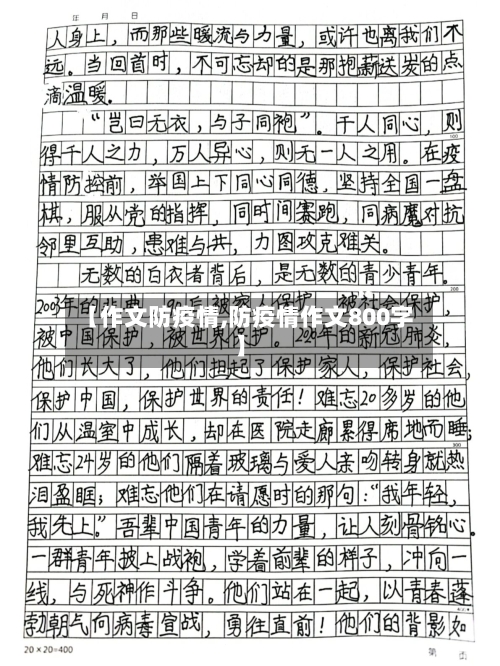 年 月 日
人身上，而那些暖流与力量，或许也离我们不
远。当回首时，不可忘却的是那抱薪送炭的点
滴温暖。
“岂曰无衣，与子同袍”。千人同心，则
得千人之力，万人异心，则无一人之用。在疫
情防控前，举国上下同心同德，坚持全国一盘
棋，服从党的指挥，同时间赛跑，同病魔对抗
邻里互助，患难与共，力图攻克难关。
无数的白衣者背后，是无数的青少青年。
2003年的非典，90后被家人保护，被社会保护，
【作文防疫情,防疫情作文800字
】
被中国保护，被世界保护。2020年的新冠肺炎，
他们长大了，他们担起了保护家人，保护社会，
保护中国，保护世界的责任！难忘20多岁的他
们从温室中成长，却在医院走廊累得席地而睡；
难忘24岁的他们隔着玻璃与爱人亲吻转身就热
泪盈眶；难忘他们在请愿时的那句：“我年轻，
我先上。”吾辈中国青年的力量，让人刻骨铭心。
一群青年披上战袍，学着前辈的样子，冲向一
线，与死神作斗争。他们站在一起，以青春蓬
勃朝气向病毒宣战，勇往直前！他们的背影如
20×20=400
第 页